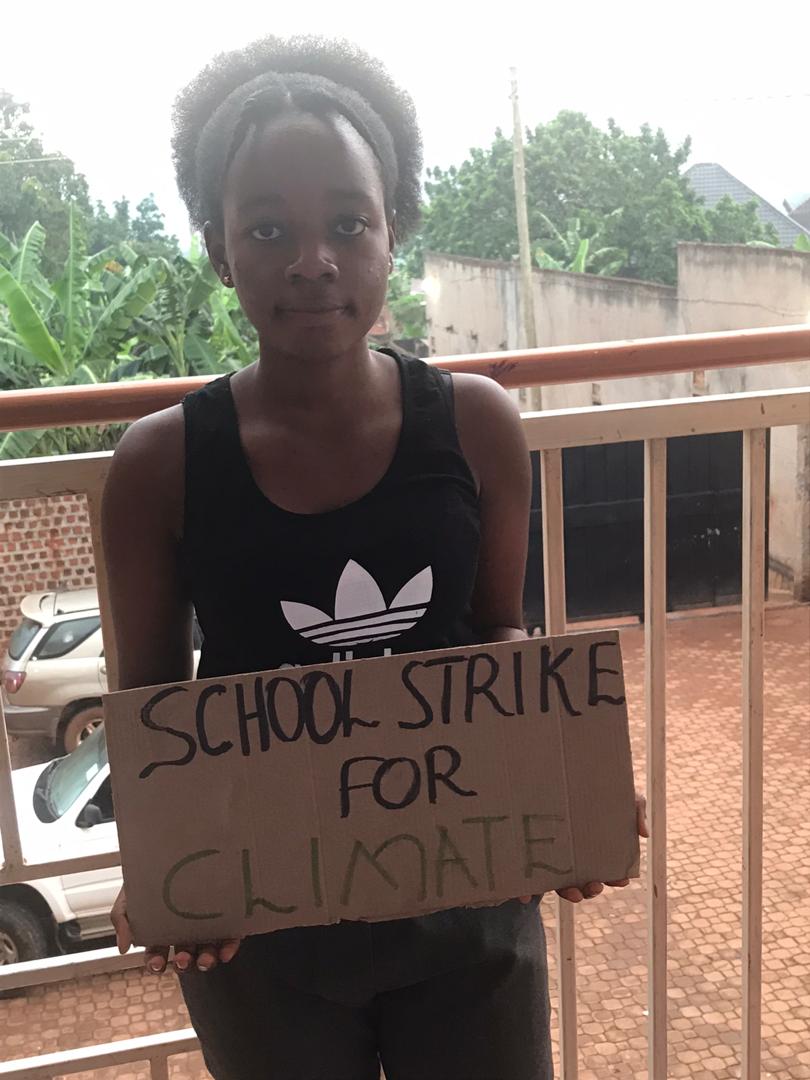 SCHOOL STRIKE
FOR
CLIMATE